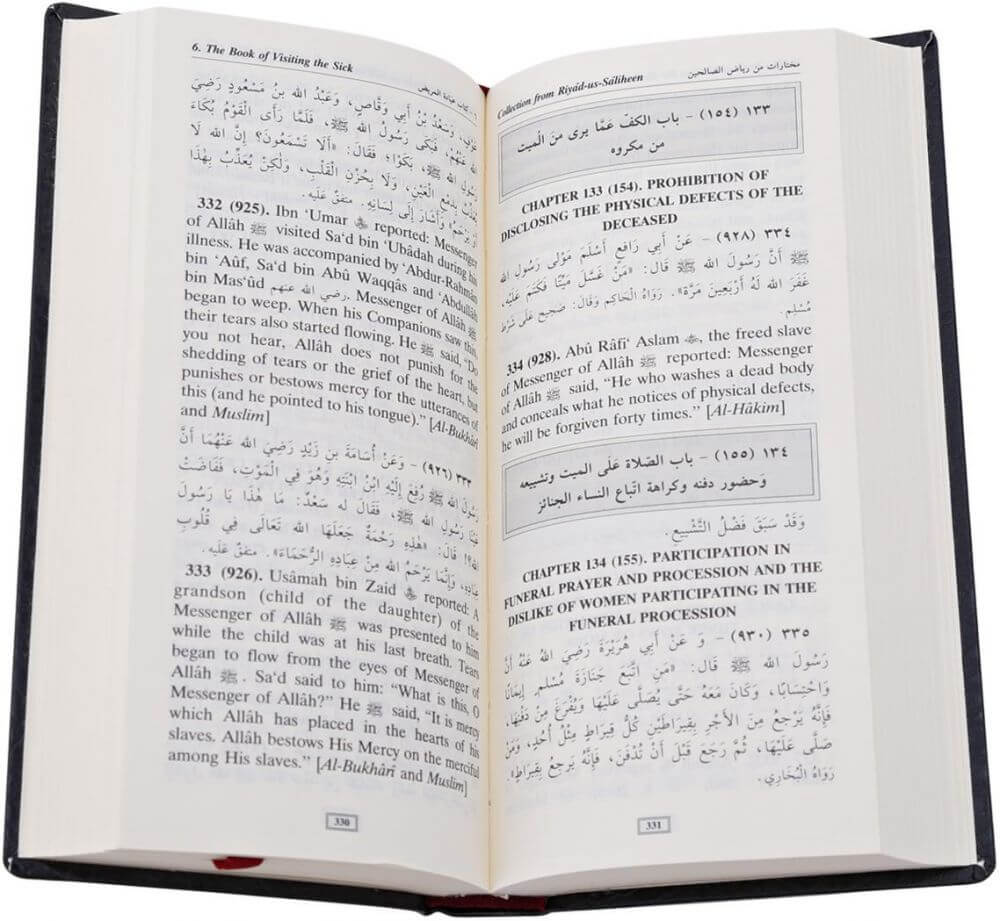 6. The Book of Visiting the Sick
٦ - كتاب عيادة المريض
عَوْفٍ، وَسَعْدُ بْنُ أَبِي وَقَّاصٍ، وَعَبْدُ اللهِ بْنُ مَسْعُودٍ رَضِيَ
اللهُ عَنْهُمْ. فَبَكَى رَسُولُ اللهِ ﷺ، فَلَمَّا رَأَى الْقَوْمُ بُكَاءَ
رَسُولِ اللهِ ﷺ، بَكَوْا؛ فَقَالَ: «أَلَا تَسْمَعُونَ؟ إِنَّ اللهَ لَا
يُعَذِّبُ بِدَمْعِ الْعَيْنِ، وَلَا بِحُزْنِ الْقَلْبِ، وَلَكِنْ يُعَذِّبُ بِهَذَا
أَوْ يَرْحَمُ» وَأَشَارَ إِلَى لِسَانِهِ. متفقٌ عليه.
332 (925). Ibn ‘Umar reported: Messenger
of Allâh ﷺ visited Sa‘d bin ‘Ubâdah during his
illness. He was accompanied by ‘Abdur-Rahmân
bin ‘Aûf, Sa‘d bin Abû Waqqâs and ‘Abdullâh
bin Mas‘ûd رضي الله عنهم. Messenger of Allâh ﷺ
began to weep. When his Companions saw this,
their tears also started flowing. He ﷺ said, “Do
you not hear, Allâh does not punish for the
shedding of tears or the grief of the heart, but
punishes or bestows mercy for the utterances of
this (and he pointed to his tongue).” [Al-Bukhârî
and Muslim]
٣٣٣ (٩٢٦) - وَعَنْ أُسَامَةَ بنِ زَيْدٍ رَضِيَ اللهُ عَنْهُمَا أَنَّ
رَسُولَ اللهِ ﷺ رُفِعَ إِلَيْهِ ابْنُ ابْنَتِهِ وَهُوَ فِي الْمَوْتِ، فَفَاضَتْ
عَيْنَا رَسُولِ اللهِ ﷺ، فَقَالَ لَه سَعْدٌ: مَا هَذَا يَا رَسُولَ
اللهِ؟! قَالَ: «هَذِهِ رَحْمَةٌ جَعَلَهَا اللهُ تَعَالَى فِي قُلُوبِ
عِبَادِهِ، وَإِنَّمَا يَرْحَمُ اللهُ مِنْ عِبَادِهِ الرُّحَمَاءَ». متفقٌ عَلَيه.
333 (926). Usâmah bin Zaid reported: A
grandson (child of the daughter) of the
Messenger of Allâh ﷺ was presented to him
while the child was at his last breath. Tears
began to flow from the eyes of Messenger of
Allâh ﷺ. Sa‘d said to him: “What is this, O
Messenger of Allâh?” He ﷺ said, “It is mercy
which Allâh has placed in the hearts of his
slaves. Allâh bestows His Mercy on the merciful
among His slaves.” [Al-Bukhârî and Muslim]
330
Collection from Riyâd-us-Sâliheen
مختارات من رياض الصالحين
١٣٣ (١٥٤) - باب الكفّ عَمَّا يرى منَ الْميت
من مكروه
CHAPTER 133 (154). PROHIBITION OF
DISCLOSING THE PHYSICAL DEFECTS OF THE
DECEASED
٣٣٤ (٩٢٨) - عَنْ أَبِي رَافِعٍ أَسْلَمَ مَوْلَى رَسُولِ اللهِ
ﷺ أَنَّ رَسُولَ اللهِ ﷺ قَالَ: «مَنْ غَسَّلَ مَيِّتًا فَكَتَمَ عَلَيْهِ،
غَفَرَ اللهُ لَهُ أَرْبَعِينَ مَرَّةً». رَوَاهُ الْحَاكِم وَقَالَ: صَحيح عَلَى شَرْطِ
مُسْلِم.
334 (928). Abû Râfi‘ Aslam, the freed slave
of Messenger of Allâh ﷺ reported: Messenger
of Allâh ﷺ said, “He who washes a dead body
and conceals what he notices of physical defects,
he will be forgiven forty times.” [Al-Hâkim]
١٣٤ (١٥٥) - باب الصَّلاة عَلَى الميت وتشييعه
وَحضور دفنه وكراهة اتّباع النساء الجنائز
وَقَدْ سَبَقَ فَضْلُ التَّشْيِيعِ.
CHAPTER 134 (155). PARTICIPATION IN
FUNERAL PRAYER AND PROCESSION AND THE
DISLIKE OF WOMEN PARTICIPATING IN THE
FUNERAL PROCESSION
٣٣٥ (٩٣٠) - وَ عَنْ أَبِي هُرَيْرَةَ رَضِيَ اللهُ عَنْهُ أَنَّ
رَسُولَ اللهِ ﷺ قَالَ: «مَنِ اتَّبَعَ جَنَازَةَ مُسْلِمٍ إِيمَانًا
وَاحْتِسَابًا، وَكَانَ مَعَهُ حَتَّى يُصَلَّى عَلَيْهَا وَيُفْرَغَ مِنْ دَفْنِهَا،
فَإِنَّهُ يَرْجِعُ مِنَ الأَجْرِ بِقِيرَاطَيْنِ كُلُّ قِيرَاطٍ مِثْلُ أُحُدٍ، وَمَنْ
صَلَّى عَلَيْهَا، ثُمَّ رَجَعَ قَبْلَ أَنْ تُدْفَنَ، فَإِنَّهُ يَرْجِعُ بِقِيرَاطٍ».
رَوَاهُ الْبُخَارِي.
331